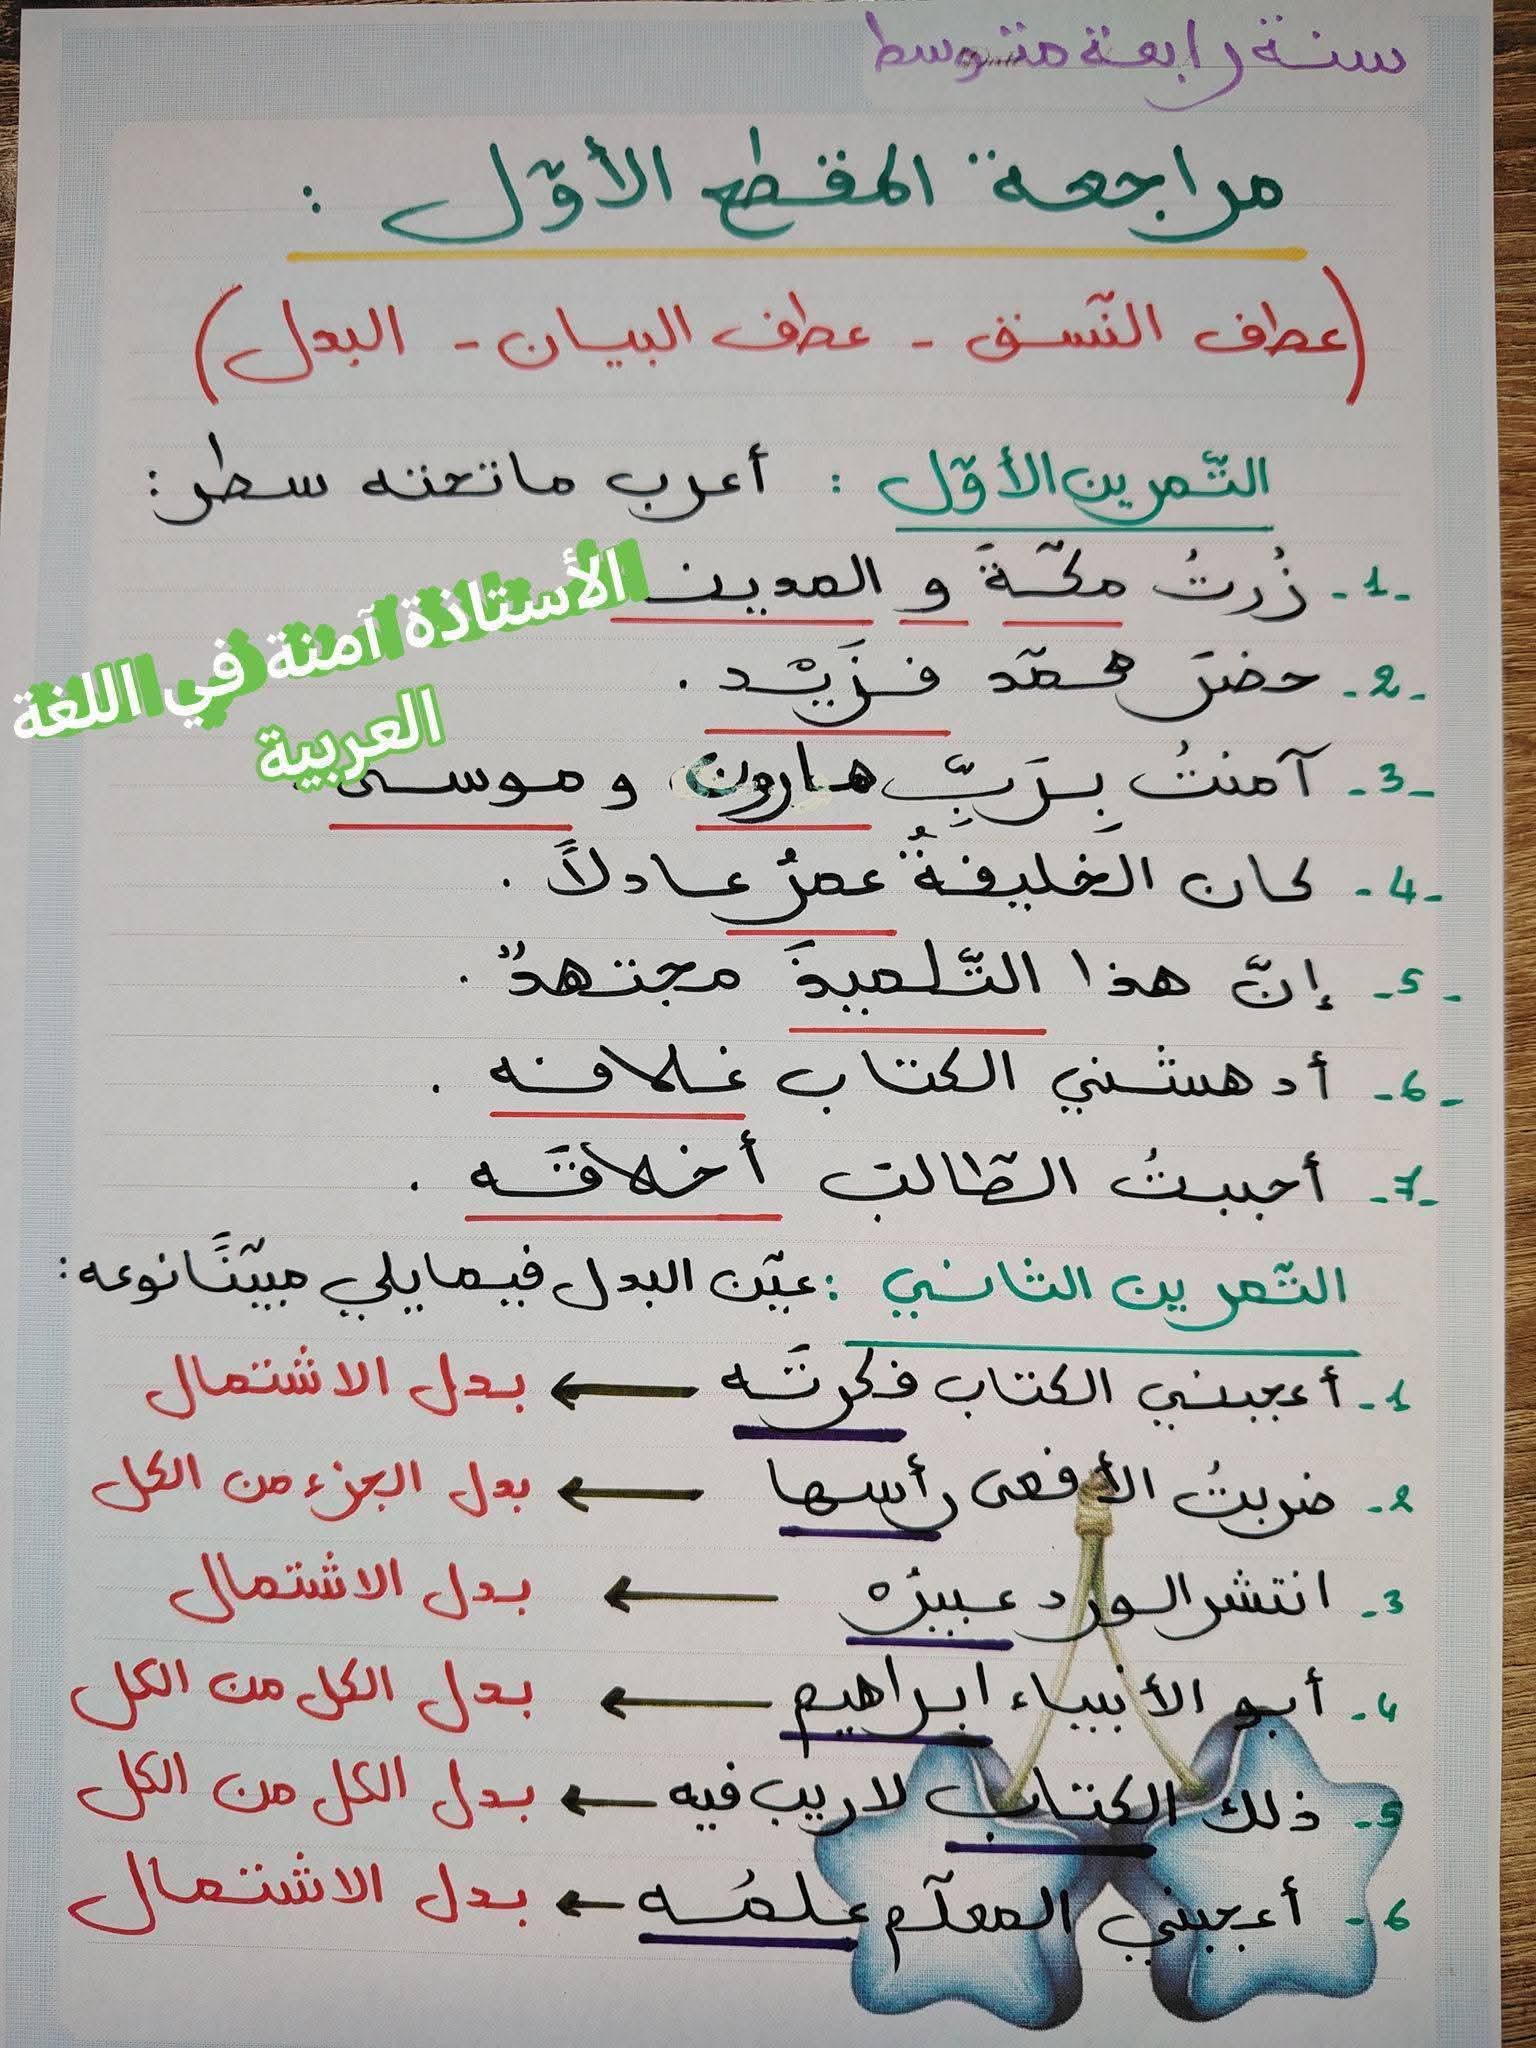 سنة رابعة متوسط
مراجعة المقطع الأوّل :
(عطف النّسق - عطف البيان - البدل)
التّمرين الأوّل : أعرب ما تحته سطر :
1- زُرتُ مكّةَ و المدين
2- حضرَ محمّد فزَيْد .
3- آمنتُ بِرَبِّ هارون و موسى
4- كان الخليفةُ عمرُ عادلاً .
5- إنّ هذا التّلميذَ مجتهدٌ .
6- أدهشني الكتاب غلافه .
7- أحببتُ الطّالبَ أخلاقَه .
الأستاذة آمنة في اللغة
العربية
التّمرين الثاني : عيّن البدل فيما يلي مبيّنًا نوعه :
1- أعجبني الكتاب فكرتَه ← بدل الاشتمال
2- ضربتُ الأفعى رأسها ← بدل الجزء من الكل
3- انتشر الورد عبيرُه ← بدل الاشتمال
4- أبو الأنبياء ابراهيم ← بدل الكل من الكل
5- ذلك الكتاب لا ريب فيه ← بدل الكل من الكل
6- أعجبني المعلّم علمُه ← بدل الاشتمال